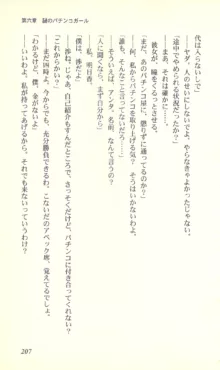 第六章 謎のパチンコガール
代は入らないしで」
「ヤダ、人のせいにしないでよ。やらなきゃよかったじゃない」
「途中でやめられる状況だったか?」
まあ、それは確かに……。
彼女、瞳をくるっとさせて、
「まだ、あのパチンコ屋に、懲りずに通ってるのか?」
「何、私からパチンコを取り上げる気? そうはいかないわよ」
「誰も、そんなこと言ってないだろ……」
「そういえば、アンタ。名前、なんて言うの?」
「人に聞くなら、まず自分から」
「私、明日香」
「僕は、渉だよ」
「渉ね。じゃ、自己紹介もすんだところで、さっそくだけど、パチンコに付き合ってくれない?」
「これからかい?」
「まだ四時よ。今から、充分勝負できるわ」
「わかるけど、僕、金がないよ」
「……いいわよ。私が持ってあげるから。それでも来ないっていうわけ?」
207